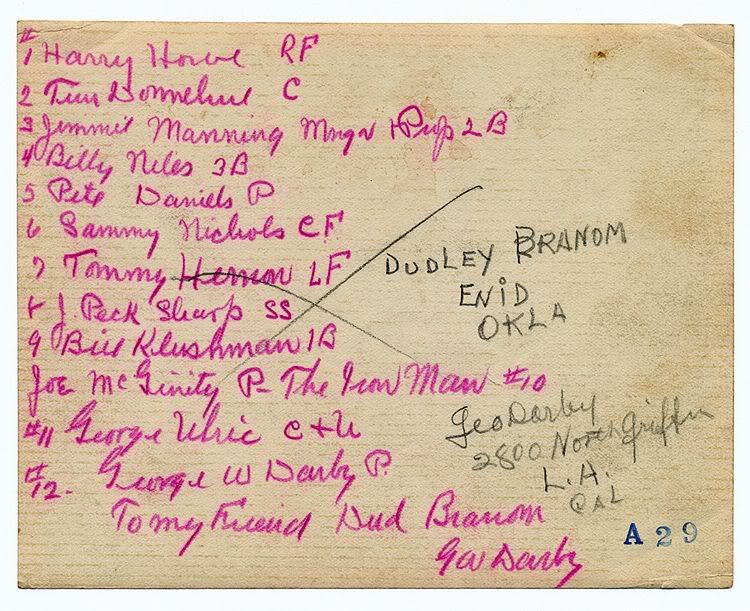 #1 Harry Howe RF
2 Tim Donnehue C
3 Jimmie Manning Mngr + Prop 2 B
4 Billy Niles 3B
5 Pete Daniels P
6 Sammy Nichols CF
7 Tommy Hernon LF
8 J. Peck Sharp SS
9 Bill Klushman 1B
Joe McGinity P- The Iron Man #10
#11 George Ulric C + U
#12. George W Darby P.
To my Friend Dud Branom
Geo Darby
DUDLEY BRANOM
ENID
OKLA
Geo Darby
2800 North Griffin
L.A.
CAL
A 29